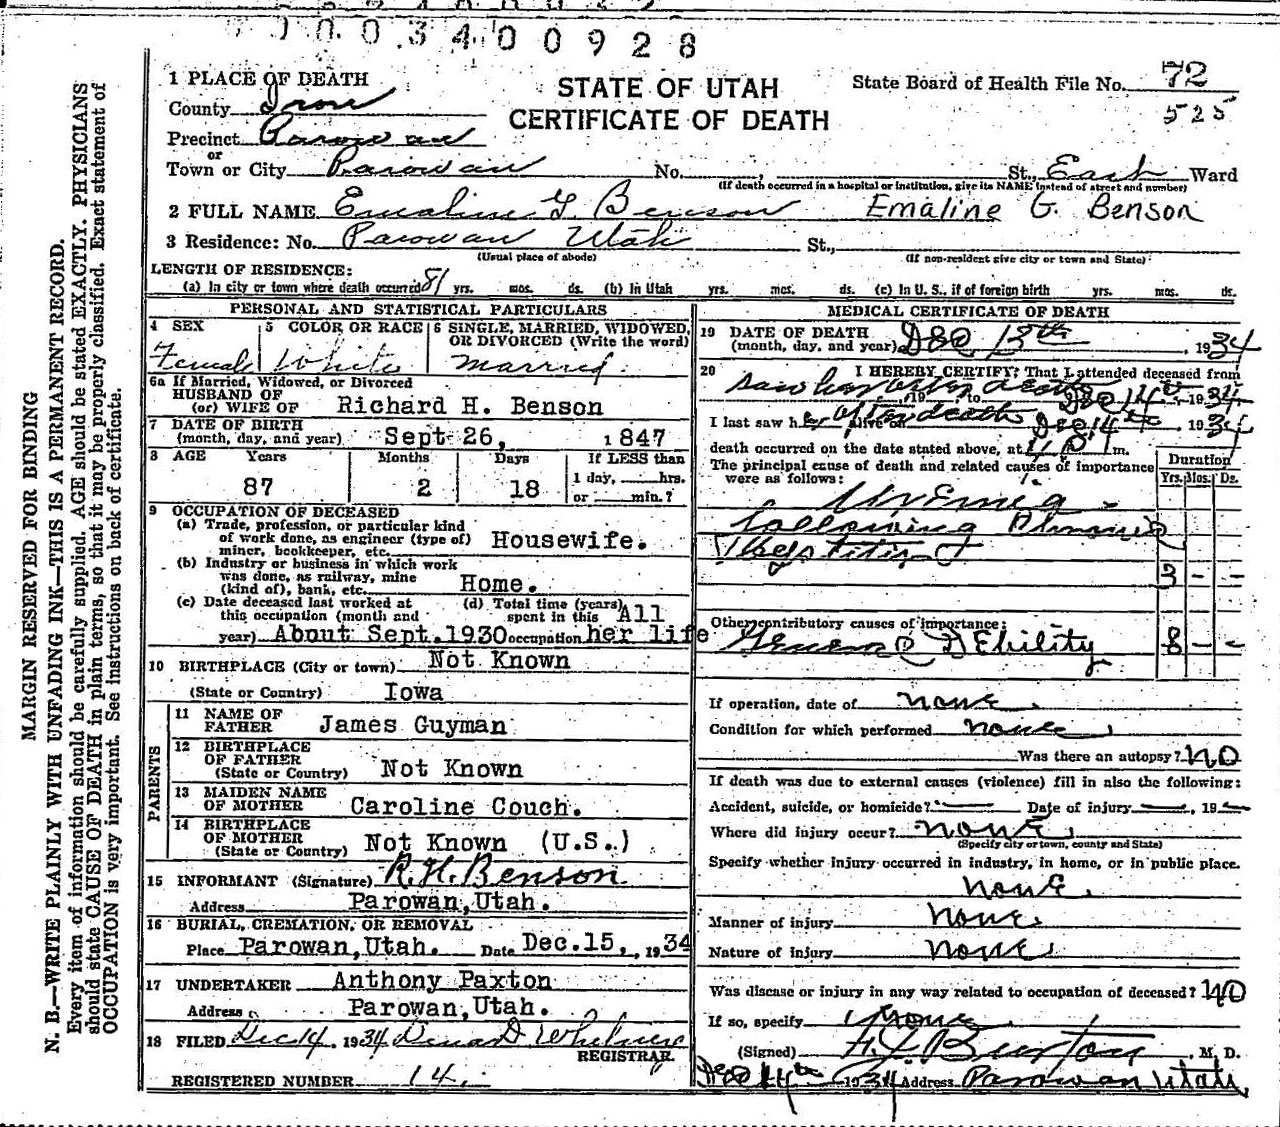 1003400928
1 PLACE OF DEATH
STATE OF UTAH
CERTIFICATE OF DEATH
State Board of Health File No. 72
525
County Iron
Precinct Parowan
or
Town or City Parowan No. , St., East Ward
(If death occurred in a hospital or institution, give its NAME instead of street and number)
2 FULL NAME Emaline G. Benson Emaline G. Benson
3 Residence: No. Parowan Utah St.,
(Usual place of abode) (If non-resident give city or town and State)
LENGTH OF RESIDENCE:
(a) In city or town where death occurred 81 yrs. mos. ds. (b) In Utah yrs. mos. ds. (c) In U. S., if of foreign birth yrs. mos. ds.
PERSONAL AND STATISTICAL PARTICULARS
4 SEX 5 COLOR OR RACE 6 SINGLE, MARRIED, WIDOWED, OR DIVORCED (Write the word)
Female White married.
6a If Married, Widowed, or Divorced
HUSBAND OF
(or) WIFE OF Richard H. Benson
7 DATE OF BIRTH
(month, day, and year) Sept 26, 1847
8 AGE Years Months Days If LESS than
1 day, hrs.
87 2 18 or min.?
9 OCCUPATION OF DECEASED
(a) Trade, profession, or particular kind
of work done, as engineer (type of)
miner, bookkeeper, etc. Housewife.
(b) Industry or business in which work
was done, as railway, mine
(kind of), bank, etc. Home.
(c) Date deceased last worked at (d) Total time (years)
this occupation (month and spent in this All
year) About Sept. 1930 occupation her life
10 BIRTHPLACE (City or town) Not Known
(State or Country) Iowa
PARENTS
11 NAME OF
FATHER James Guyman
12 BIRTHPLACE
OF FATHER
(State or Country) Not Known
13 MAIDEN NAME
OF MOTHER Caroline Couch.
14 BIRTHPLACE
OF MOTHER
(State or Country) Not Known (U.S.)
15 INFORMANT (Signature) R. H. Benson
Address Parowan, Utah.
16 BURIAL, CREMATION, OR REMOVAL
Place Parowan, Utah. Date Dec. 15, , 1934
17 UNDERTAKER Anthony Paxton
Address Parowan, Utah.
18 FILED Dec 14, 1934
REGISTRAR
REGISTERED NUMBER 14.
MEDICAL CERTIFICATE OF DEATH
19 DATE OF DEATH
(month, day, and year) Dec 13th , 1934
20 I HEREBY CERTIFY: That I attended deceased from
saw her after death , 19 to Dec 14th , 1934
I last saw her alive on after death Dec 14th , 1934
death occurred on the date stated above, at m.
The principal cause of death and related causes of importance
were as follows:
Duration
Yrs. Mos. Ds.
Uremia
following
3 - -
Other contributory causes of importance:
General Debility 8 - -
If operation, date of none
Condition for which performed none
Was there an autopsy? no
If death was due to external causes (violence) fill in also the following:
Accident, suicide, or homicide? Date of injury , 19
Where did injury occur? none
(Specify city or town, county and State)
Specify whether injury occurred in industry, in home, or in public place.
none
Manner of injury none
Nature of injury none
Was disease or injury in any way related to occupation of deceased? no
If so, specify none
(Signed) Burton , M. D.
Dec 14th 1934 Address Parowan Utah
MARGIN RESERVED FOR BINDING
N. B.—WRITE PLAINLY WITH UNFADING INK—THIS IS A PERMANENT RECORD.
Every item of information should be carefully supplied. AGE should be stated EXACTLY. PHYSICIANS
should state CAUSE OF DEATH in plain terms, so that it may be properly classified. Exact statement of
OCCUPATION is very important. See instructions on back of certificate.